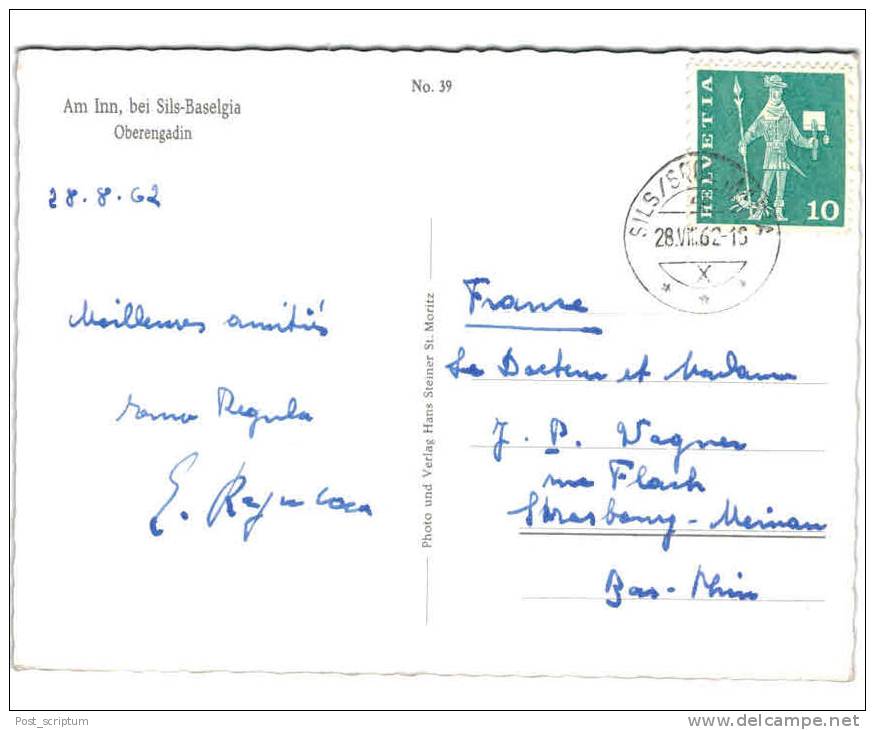 No. 39
Am Inn, bei Sils-Baselgia
Oberengadin
28.8.62
Meilleures amitiés
Regula
E.
Photo und Verlag Hans Steiner St. Moritz
HELVETIA
10
SILS/
28.VIII.62-18
X
France
Le Docteur et Madame
J. P. Wagner
rue Flach
Strasbourg-Meinau
Bas-Rhin
Post_scriptum
www.delcampe.net